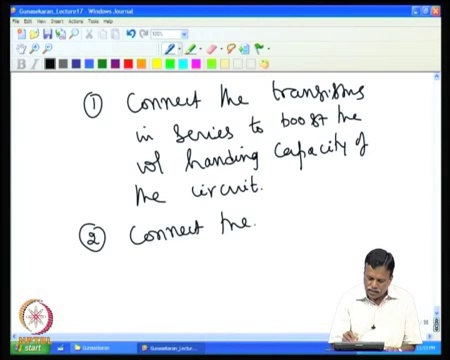 Gunasekaran_Lecture17 - Windows Journal
File Edit View Insert Actions Tools Help
100%
B I
① Connect the transistors
in series to boost the
vol handing capacity of
the circuit.
② Connect the.
NPTEL
start Gunasekaran Gunasekaran_Lectu...